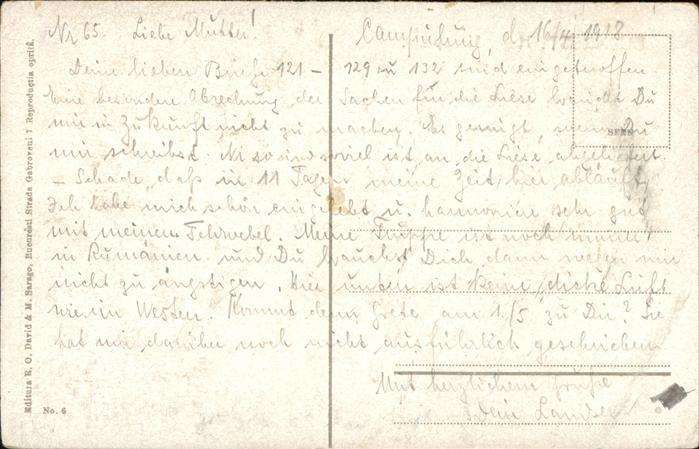 Nr 65. Liebe Mutter! Campulung, d. 16/4 1918
Deine lieben Briefe 121 – 129 u 132 sind eingetroffen
Eine besondere Abrechnung der Sachen für die Liese brauchst Du
mir in Zukunft nicht zu machen. Es genügt, wenn Du
mir schreibst. No so und soviel ist an die Liese abgeliefert
– Schade, daß in 11 Tagen meine Zeit hier abläuft.
Ich habe mich schön eingelebt u. harmoniere sehr gut
mit meinem Feldwebel. Meine Truppe ist noch immer
in Rumänien und Du brauchst Dich dann wegen mir
nicht zu ängstigen. Hier unten ist keine dicke Luft
wie im Westen. Kommt denn Grete am 1/5 zu Dir? Sie
hat mir darüber noch nicht ausführlich geschrieben
Mit herzlichem Gruße
Dein
Editura R. O. David & M. Saraga, Bucuresti Strada Gabroveni 7 Reproductia oprită.
No. 6